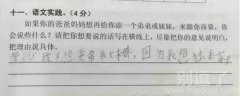 十一、语文实践。(4分)
如果你的爸爸妈妈想再给你添一个弟弟或妹妹，来跟你商量，你
会说些什么？请把你想要说的话写在横线上，尽量把你的意见说明白，
把理由说具体。
我不想要弟弟妹妹，因为我想独